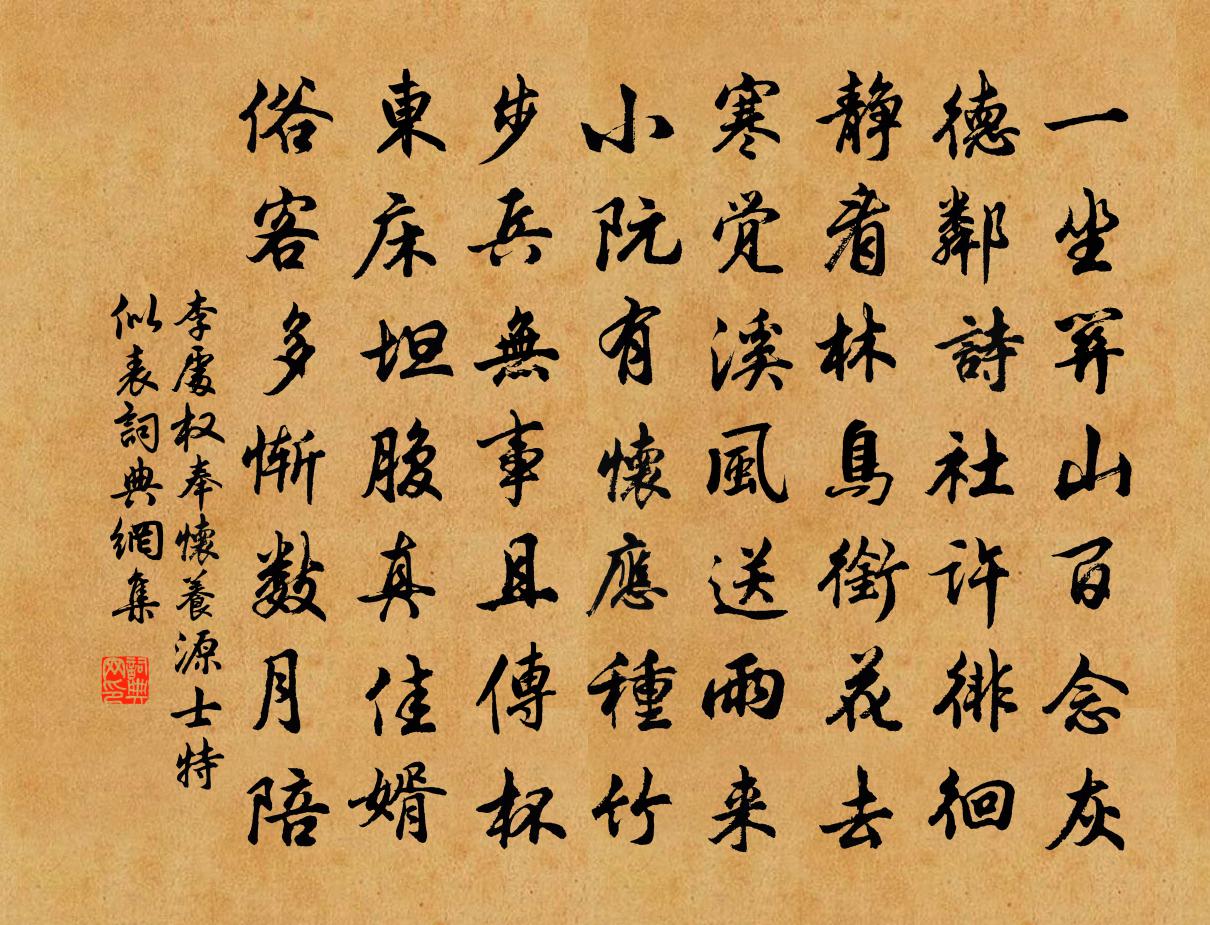 一坐笄山百念灰
德鄰詩社許徘徊
静看林鳥銜花去
寒覚溪風送雨来
小阮有懷應種竹
步兵無事且傳杯
東床坦腹真佳婿
俗客多慚数月陪
李處权奉懷養源士特
似表詞典網集
詞典网印